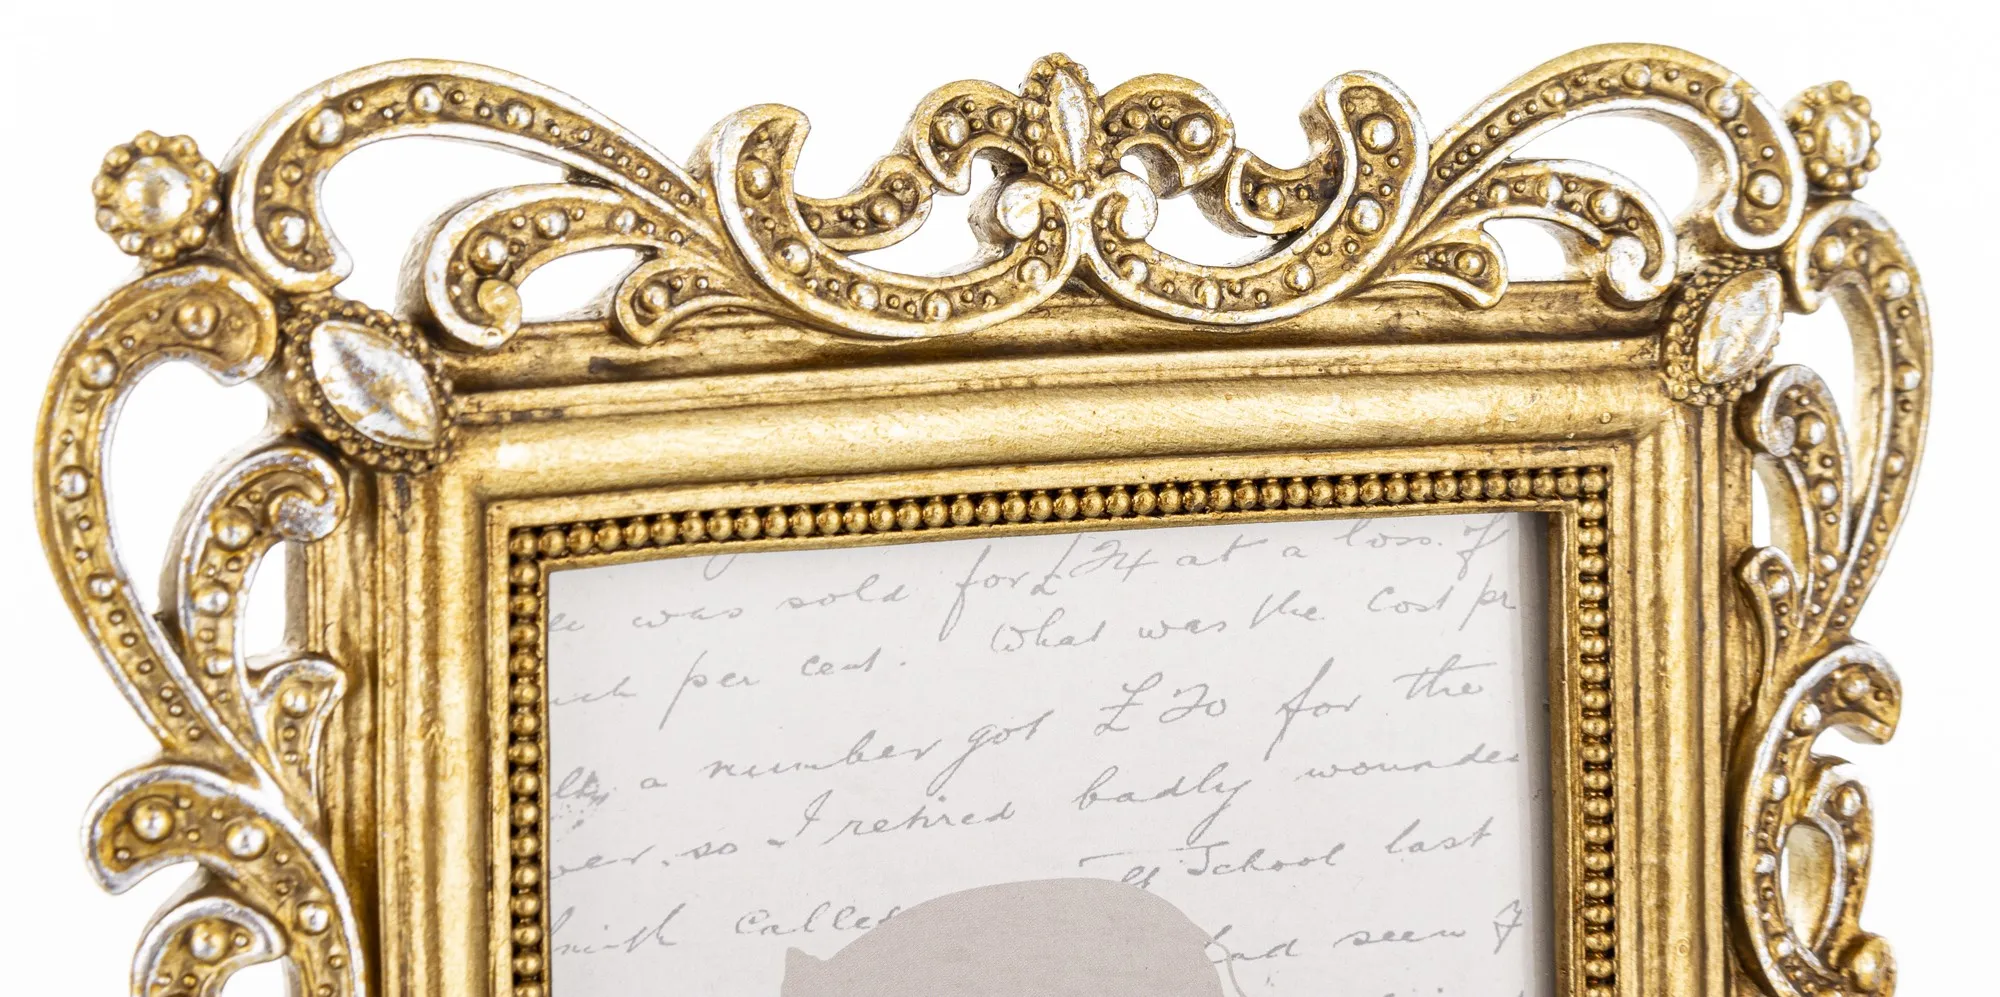 was sold for £24 at a loss. If
per cent. What was the cost pr
a number got £20 for the
so I retired badly wounde
School last
Called
had seen